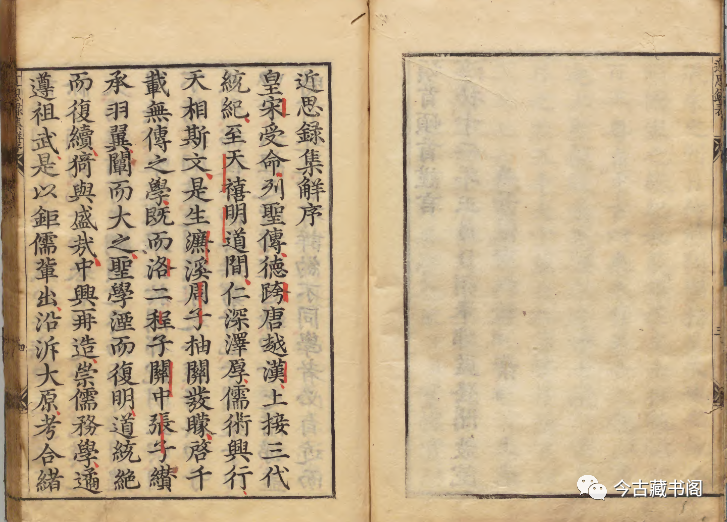 近思録集解序
皇宋受命列聖傳德跨唐越漢上接三代
統紀至天禧明道間仁深澤厚儒術興行
天相斯文是生濂溪周子抽關發矇啓千
載無傳之學既而洛二程子關中張子纘
承羽翼闡而大之聖學湮而復明道統絶
而復續猗與盛㢤中興再造崇儒務學遹
遵祖武是以鉅儒輩出沿泝大原考合緒
今古藏书阁